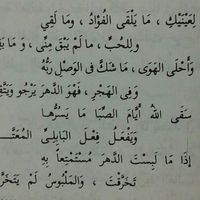 لِعَيْنَيْكِ ، مَا يَلْقَى الْفُؤَادُ ، وَمَا لَقِي
وللحُبِّ ، ما لم يَبْقَ مِنِّى ، وَ مَا
وَأَحْلَى الْهَوَى ، مَا شَكَّ فى الوَصْلِ رَبُّهُ
وَفى الهَجْرِ ، فَهْوَ الدَّهرَ يَرْجُو
سَقَى اللهُ أَيَّامَ الصِّبَا مَا يَسُرُّهَا
وَيَفْعَلُ فِعْلَ البَابِلِىِّ
إذَا مَا لَبِسْتَ الدَّهرَ مُسْتَمْتِعاً بِهِ
تَخَرَّقْتَ ، وَالمَلْبُوسُ لَمْ